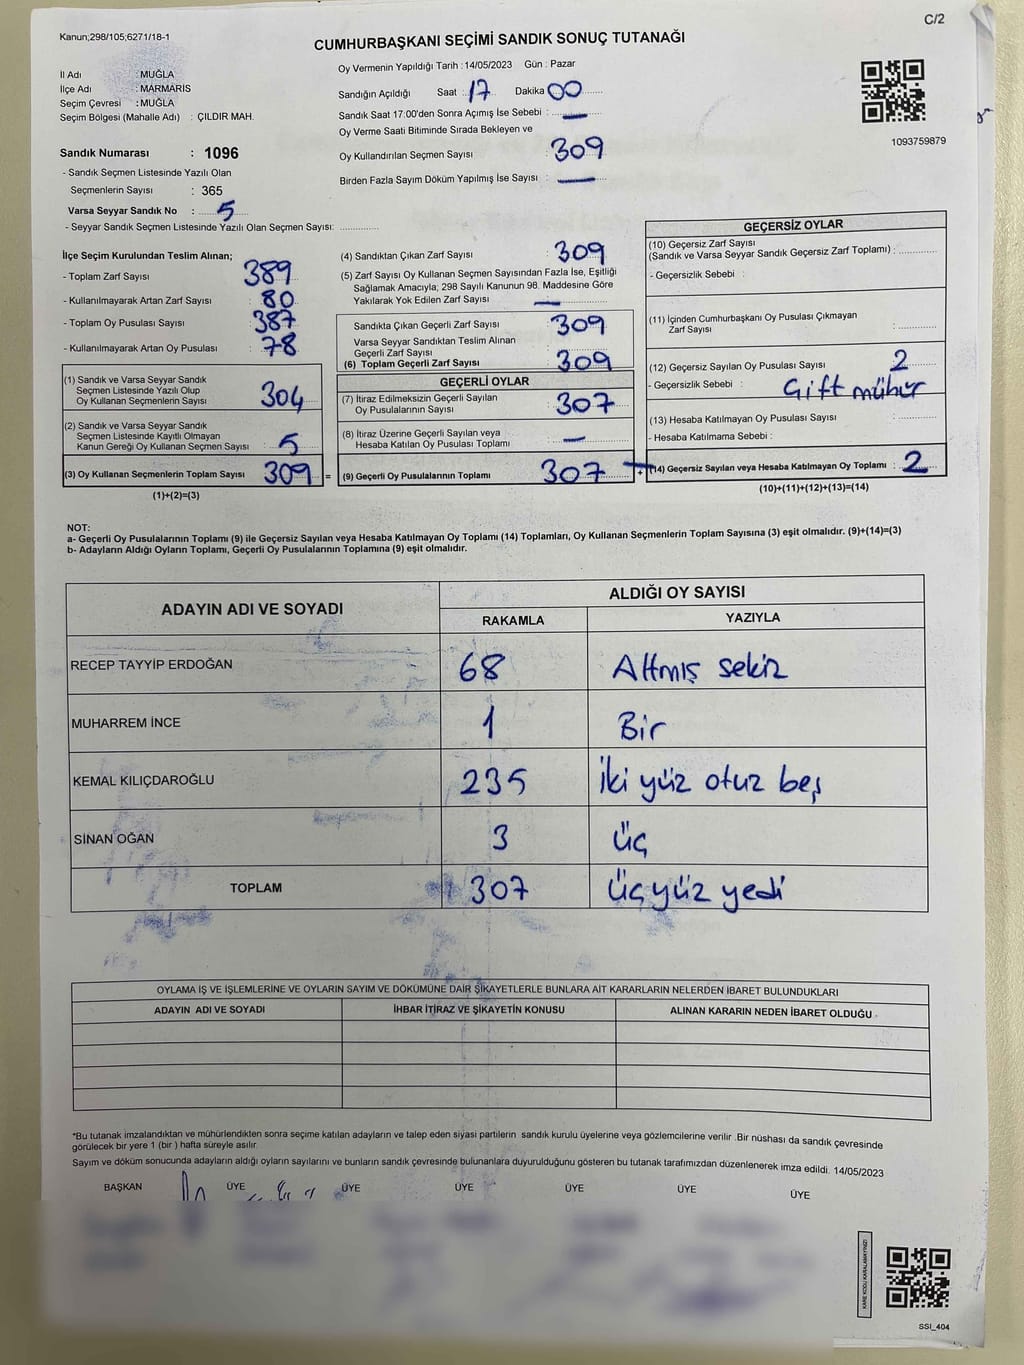 C/2
Kanun;298/105;6271/18-1
CUMHURBAŞKANI SEÇİMİ SANDIK SONUÇ TUTANAĞI
İl Adı : MUĞLA
İlçe Adı : MARMARİS
Seçim Çevresi : MUĞLA
Seçim Bölgesi (Mahalle Adı) : ÇILDIR MAH.
Oy Vermenin Yapıldığı Tarih : 14/05/2023 Gün : Pazar
Sandığın Açıldığı Saat : 17 Dakika : 00
Sandık Saat 17:00'den Sonra Açımış İse Sebebi : —
Oy Verme Saati Bitiminde Sırada Bekleyen ve
Oy Kullandırılan Seçmen Sayısı : 309
Birden Fazla Sayım Döküm Yapılmış İse Sayısı : —
1093759879
Sandık Numarası : 1096
- Sandık Seçmen Listesinde Yazılı Olan
Seçmenlerin Sayısı : 365
Varsa Seyyar Sandık No : 5
- Seyyar Sandık Seçmen Listesinde Yazılı Olan Seçmen Sayısı:
İlçe Seçim Kurulundan Teslim Alınan;
- Toplam Zarf Sayısı : 389
- Kullanılmayarak Artan Zarf Sayısı : 80
- Toplam Oy Pusulası Sayısı : 387
- Kullanılmayarak Artan Oy Pusulası : 78
(1) Sandık ve Varsa Seyyar Sandık
Seçmen Listesinde Yazılı Olup
Oy Kullanan Seçmenlerin Sayısı : 304
(2) Sandık ve Varsa Seyyar Sandık
Seçmen Listesinde Kayıtlı Olmayan
Kanun Gereği Oy Kullanan Seçmen Sayısı : 5
(3) Oy Kullanan Seçmenlerin Toplam Sayısı : 309
(1)+(2)=(3)
(4) Sandıktan Çıkan Zarf Sayısı : 309
(5) Zarf Sayısı Oy Kullanan Seçmen Sayısından Fazla İse, Eşitliği
Sağlamak Amacıyla; 298 Sayılı Kanunun 98. Maddesine Göre
Yakılarak Yok Edilen Zarf Sayısı : —
Sandıkta Çıkan Geçerli Zarf Sayısı : 309
Varsa Seyyar Sandıktan Teslim Alınan
Geçerli Zarf Sayısı
(6) Toplam Geçerli Zarf Sayısı : 309
GEÇERLİ OYLAR
(7) İtiraz Edilmeksizin Geçerli Sayılan
Oy Pusulalarının Sayısı : 307
(8) İtiraz Üzerine Geçerli Sayılan veya
Hesaba Katılan Oy Pusulası Toplamı : —
= (9) Geçerli Oy Pusulalarının Toplamı : 307 +
GEÇERSİZ OYLAR
(10) Geçersiz Zarf Sayısı
(Sandık ve Varsa Seyyar Sandık Geçersiz Zarf Toplamı) :
- Geçersizlik Sebebi :
(11) İçinden Cumhurbaşkanı Oy Pusulası Çıkmayan
Zarf Sayısı :
(12) Geçersiz Sayılan Oy Pusulası Sayısı : 2
- Geçersizlik Sebebi : Çift mühür
(13) Hesaba Katılmayan Oy Pusulası Sayısı :
- Hesaba Katılmama Sebebi :
(14) Geçersiz Sayılan veya Hesaba Katılmayan Oy Toplamı : 2
(10)+(11)+(12)+(13)=(14)
NOT:
a- Geçerli Oy Pusulalarının Toplamı (9) ile Geçersiz Sayılan veya Hesaba Katılmayan Oy Toplamı (14) Toplamları, Oy Kullanan Seçmenlerin Toplam Sayısına (3) eşit olmalıdır. (9)+(14)=(3)
b- Adayların Aldığı Oyların Toplamı, Geçerli Oy Pusulalarının Toplamına (9) eşit olmalıdır.
ADAYIN ADI VE SOYADI
ALDIĞI OY SAYISI
RAKAMLA YAZIYLA
RECEP TAYYİP ERDOĞAN 68 Altmış sekiz
MUHARREM İNCE 1 Bir
KEMAL KILIÇDAROĞLU 235 İki yüz otuz beş
SİNAN OĞAN 3 Üç
TOPLAM 307 Üç yüz yedi
OYLAMA İŞ VE İŞLEMLERİNE VE OYLARIN SAYIM VE DÖKÜMÜNE DAİR ŞİKAYETLERLE BUNLARA AİT KARARLARIN NELERDEN İBARET BULUNDUKLARI
ADAYIN ADI VE SOYADI İHBAR İTİRAZ VE ŞİKAYETİN KONUSU ALINAN KARARIN NEDEN İBARET OLDUĞU
*Bu tutanak imzalandıktan ve mühürlendikten sonra seçime katılan adayların ve talep eden siyasi partilerin sandık kurulu üyelerine veya gözlemcilerine verilir .Bir nüshası da sandık çevresinde
görülecek bir yere 1 (bir ) hafta süreyle asılır.
Sayım ve döküm sonucunda adayların aldığı oyların sayılarını ve bunların sandık çevresinde bulunanlara duyurulduğunu gösteren bu tutanak tarafımızdan düzenlenerek imza edildi. 14/05/2023
BAŞKAN ÜYE ÜYE ÜYE ÜYE ÜYE ÜYE
KARE KODU KARALAMAYINIZ!
SSI_404